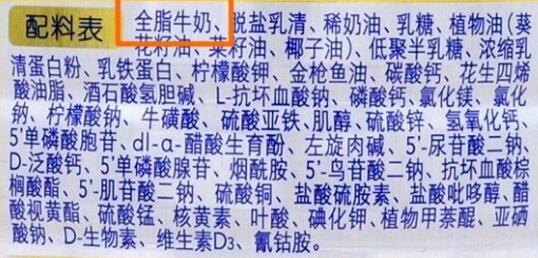 配料表
全脂牛奶、脱盐乳清、稀奶油、乳糖、植物油（葵
花籽油、菜籽油、椰子油）、低聚半乳糖、浓缩乳
清蛋白粉、乳铁蛋白、柠檬酸钾、金枪鱼油、碳酸钙、花生四烯
酸油脂、酒石酸氢胆碱、L-抗坏血酸钠、磷酸钙、氯化镁、氯化
钠、柠檬酸钠、牛磺酸、硫酸亚铁、肌醇、硫酸锌、氢氧化钙、
5'单磷酸胞苷、dl-α-醋酸生育酚、左旋肉碱、5'-尿苷酸二钠、
D-泛酸钙、5'单磷酸腺苷、烟酰胺、5'-鸟苷酸二钠、抗坏血酸棕
榈酸酯、5'-肌苷酸二钠、硫酸铜、盐酸硫胺素、盐酸吡哆醇、醋
酸视黄酯、硫酸锰、核黄素、叶酸、碘化钾、植物甲萘醌、亚硒
酸钠、D-生物素、维生素D₃、氰钴胺。